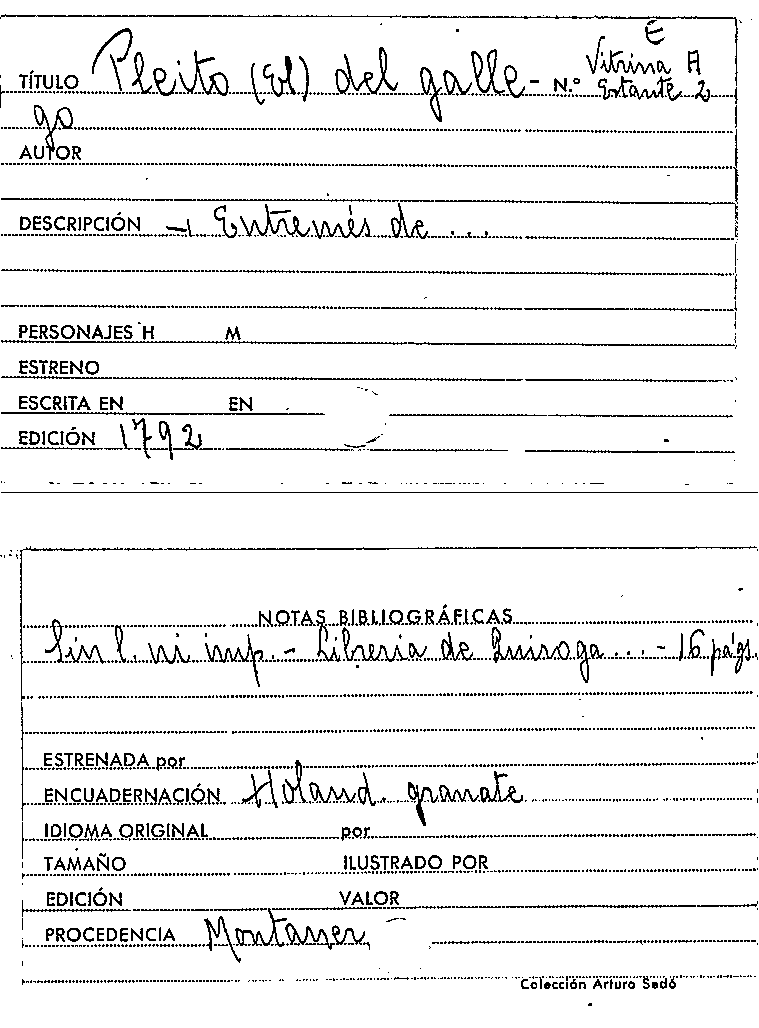 E
Vitrina A
TÍTULO Pleito (El) del galle- N.º Estante 2
go
AUTOR
DESCRIPCIÓN -, Entremés de ...
PERSONAJES H M
ESTRENO
ESCRITA EN EN
EDICIÓN 1792
NOTAS BIBLIOGRÁFICAS
Sin l. ni imp. - Librería de Quiroga ... - 16 págs.
ESTRENADA por
ENCUADERNACIÓN Holand. granate
IDIOMA ORIGINAL por
TAMAÑO ILUSTRADO POR
EDICIÓN VALOR
PROCEDENCIA Montaner
Colección Arturo Sedó